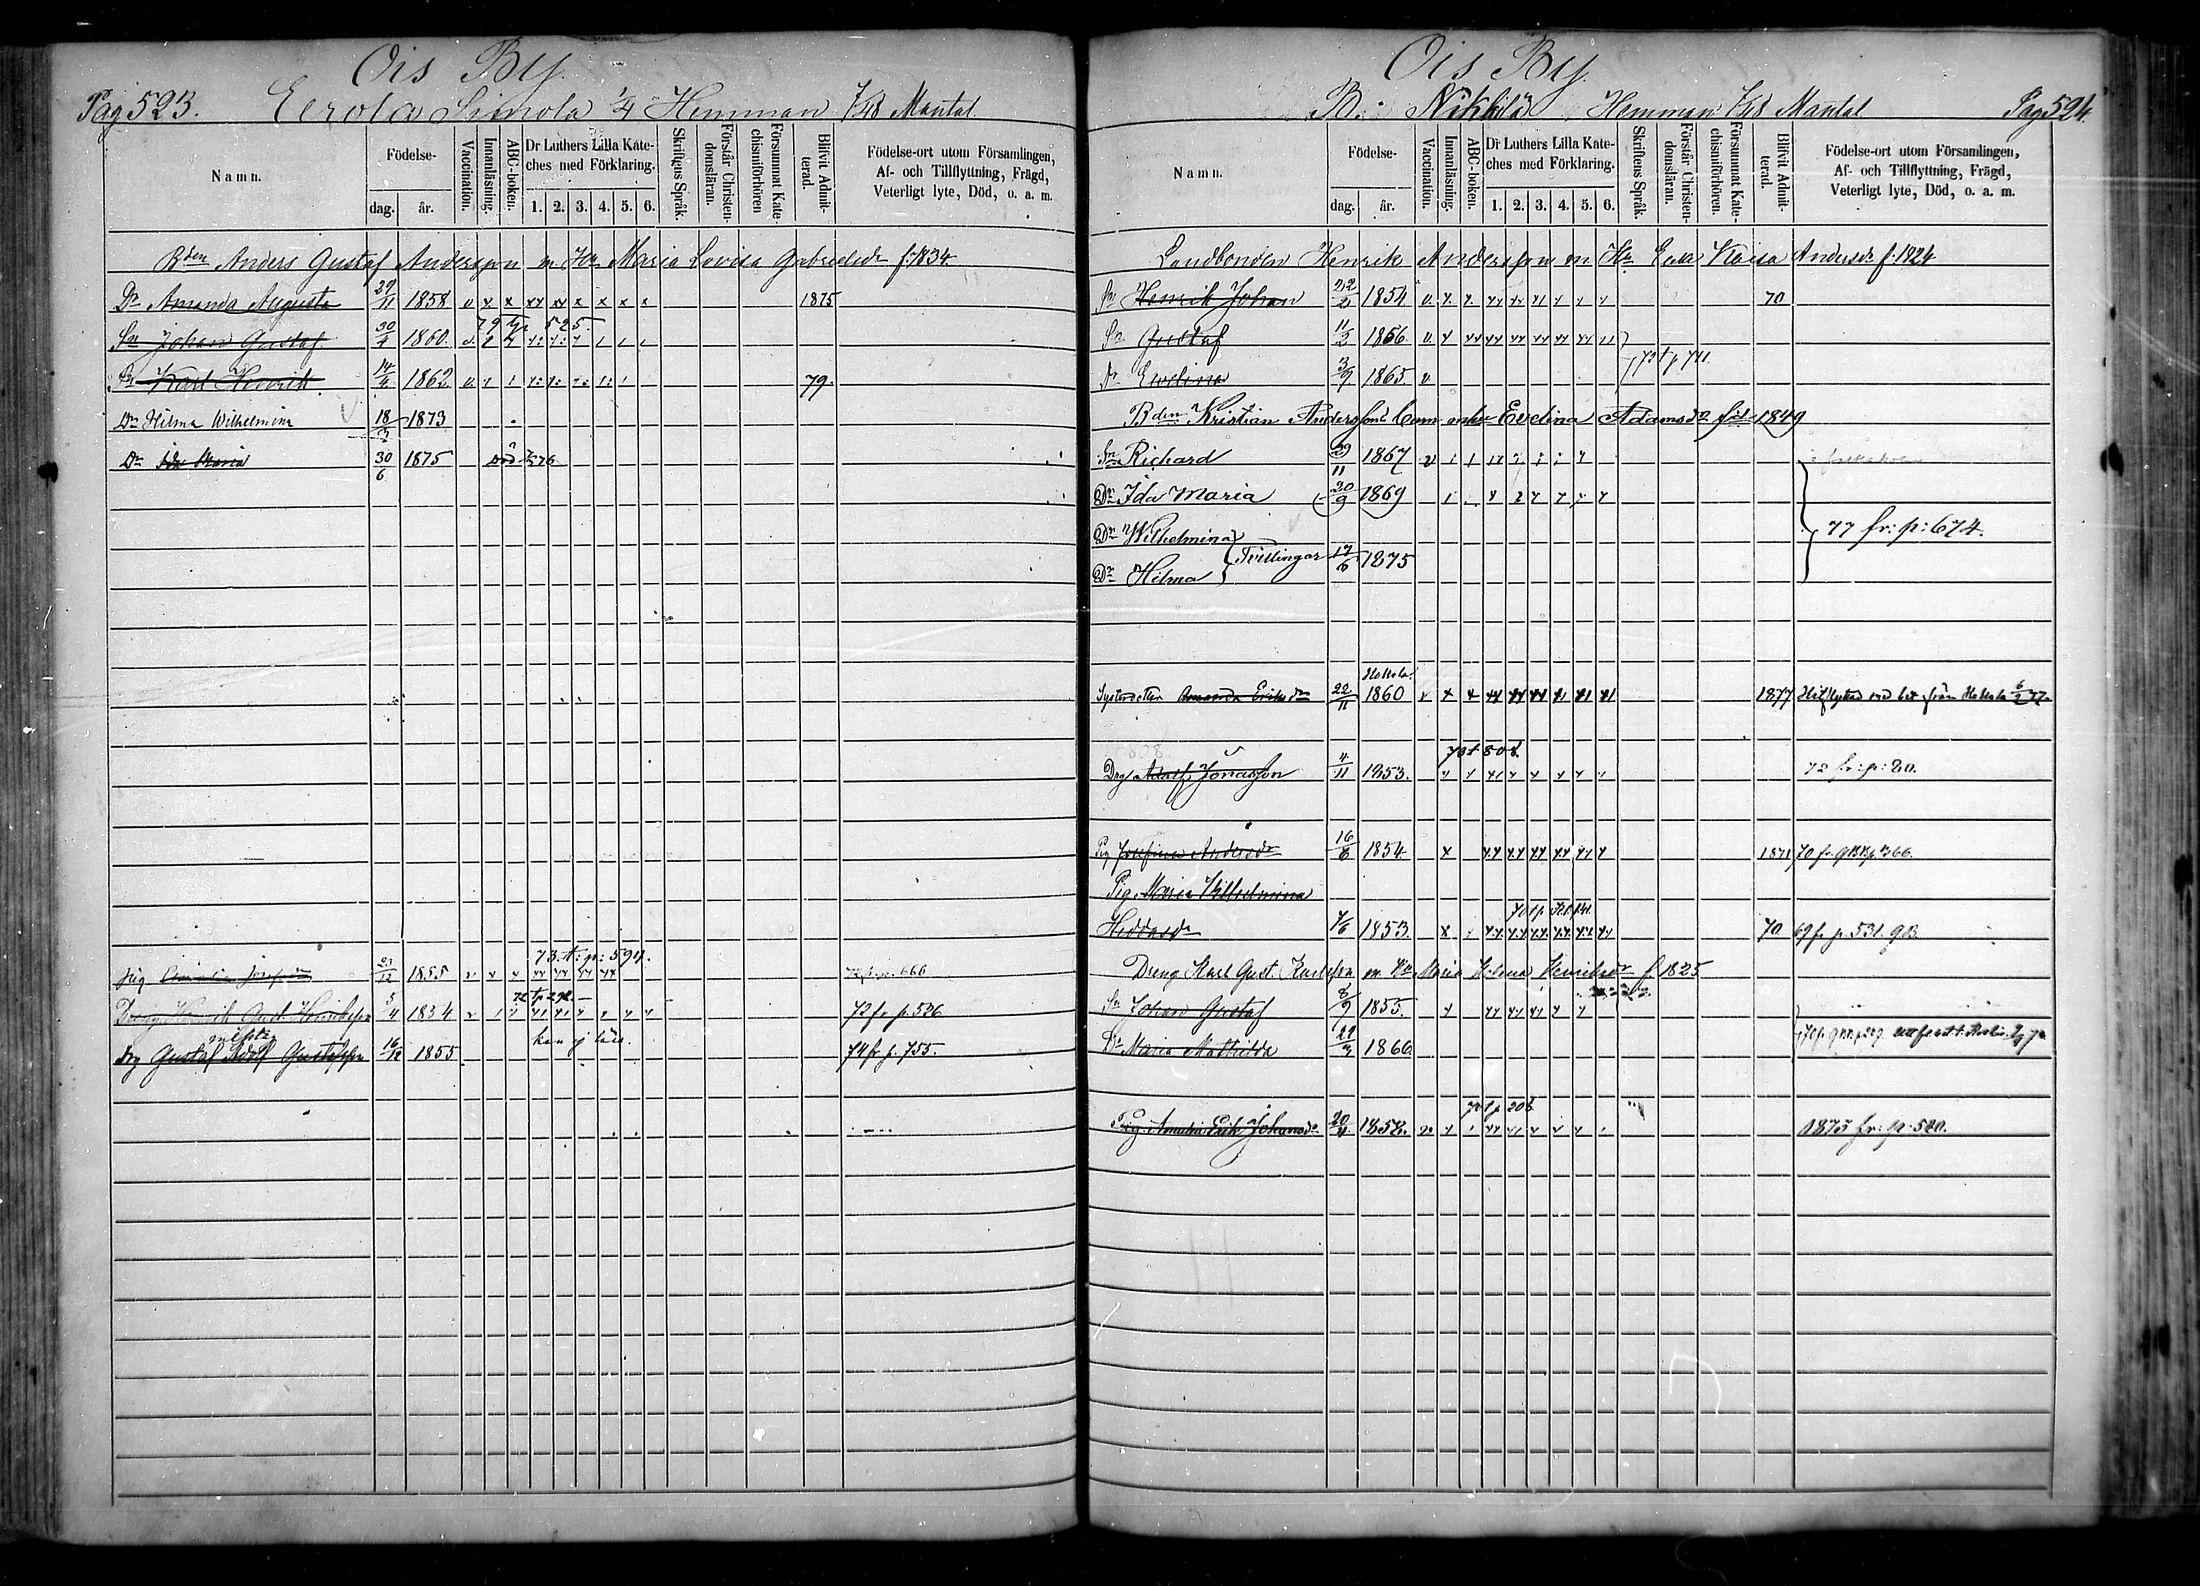 Ois By
Pag 523. Eerola Simola 1/4 Hemman 7/48 Mantal
Namn.
Födelse-
dag. år.
Vaccination.
Innanläsning.
ABC-boken.
Dr Luthers Lilla Kate-
ches med Förklaring.
1. 2. 3. 4. 5. 6.
Skriftens Språk.
Förstår Christen-
domsläran.
Försummat Kate-
chismiförhören
Blifvit Admit-
terad.
Födelse-ort utom Församlingen,
Af- och Tillflyttning, Frägd,
Veterligt lyte, Död, o. a. m.
Bden Anders Gustaf Andersson m. Hu Maria Lovisa Gabrielsdr f. 1834
Dr Amanda Augusta 29/11 1858 v x x xx xx x x x x 1875
79 tp 525.
Sn Johan Gustaf 30/4 1860
Sn Karl Henrik 14/4 1862 79.
Dr Hilma Wilhelmina 18/3 1873
Dr Ida Maria 30/6 1875 Död 76
73 t: p: 594.
Pig 23/12 1855 666
72 tp 292
Dreng Henrik Aug. Henriksson 5/4 1854 72 fr p. 526
kan ej läsa.
Drg Gustaf Adolf Gustafsson 16/12 1855 74 fr p. 755.
Ois By.
B. Nikkilä Hemman 7/48 Mantal Pag 524.
Namn.
Födelse-
dag. år.
Vaccination.
Innanläsning.
ABC-boken.
Dr Luthers Lilla Kate-
ches med Förklaring.
1. 2. 3. 4. 5. 6.
Skriftens Språk.
Förstår Christen-
domsläran.
Försummat Kate-
chismiförhören.
Blifvit Admit-
terad.
Födelse-ort utom Församlingen,
Af- och Tillflyttning, Frägd,
Veterligt lyte, Död, o. a. m.
Landbonden Henrik Andersson m Hu Eva Kaisa Andersdr f. 1824
Sn Henrik Johan 22/2 1854 70
Sn Gustaf 11/3 1856
73 t p 711.
Dr Evelina 3/9 1865. v
Bden Kristian Andersson Evelina Adamsdr föd 1849
Sn Richard 29/11 1867
Dr Ida Maria 20/9 1869
Dr Wilhelmina 77 fr: p: 674.
Tvillingar 17/6 1875
Dr Hilma
Hollola.
Systerdotter Amanda Eriksdr 22/11 1860 1877 Inflyttad med bet från Hollola 6/2 77.
73 t 808.
Drg Adolf Jonasson 4/11 1853. 72 fr: p: 80.
Pig Josefina Andersdr 16/6 1854. 1871 70 fr. 366.
Pig. Maria Wilhelmina
Heddasdr 7/6 1853. 70 69 fr p. 531. gB.
Dreng Karl Gust. Karlsson m. Hu Maria Helena Henriksdr f. 1825
Sn Johan Gustaf 8/9 1855.
Dr Maria Mathilda 22/3 1866.
t p 206.
Pig. Amalia Erik Johansdr 20/11 1852. 1875 fr: p: 520.